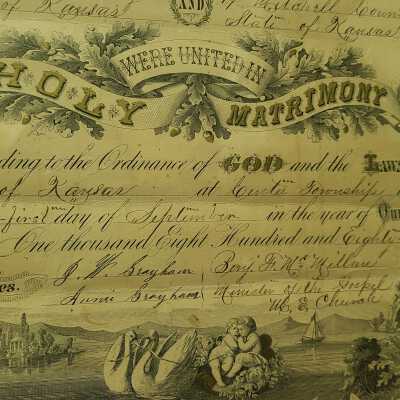 of Kansas AND of Mitchell Coun
State of Kansas
WERE UNITED IN
HOLY MATRIMONY
ding to the Ordinance of GOD and the Laws
of Kansas at Township
-first day of September in the year of Our
One thousand Eight Hundred and Eighty
J. W. Brayham Benj. F. McMillan
Annie Brayham Minister of the Gospel
rs. M. E. Church